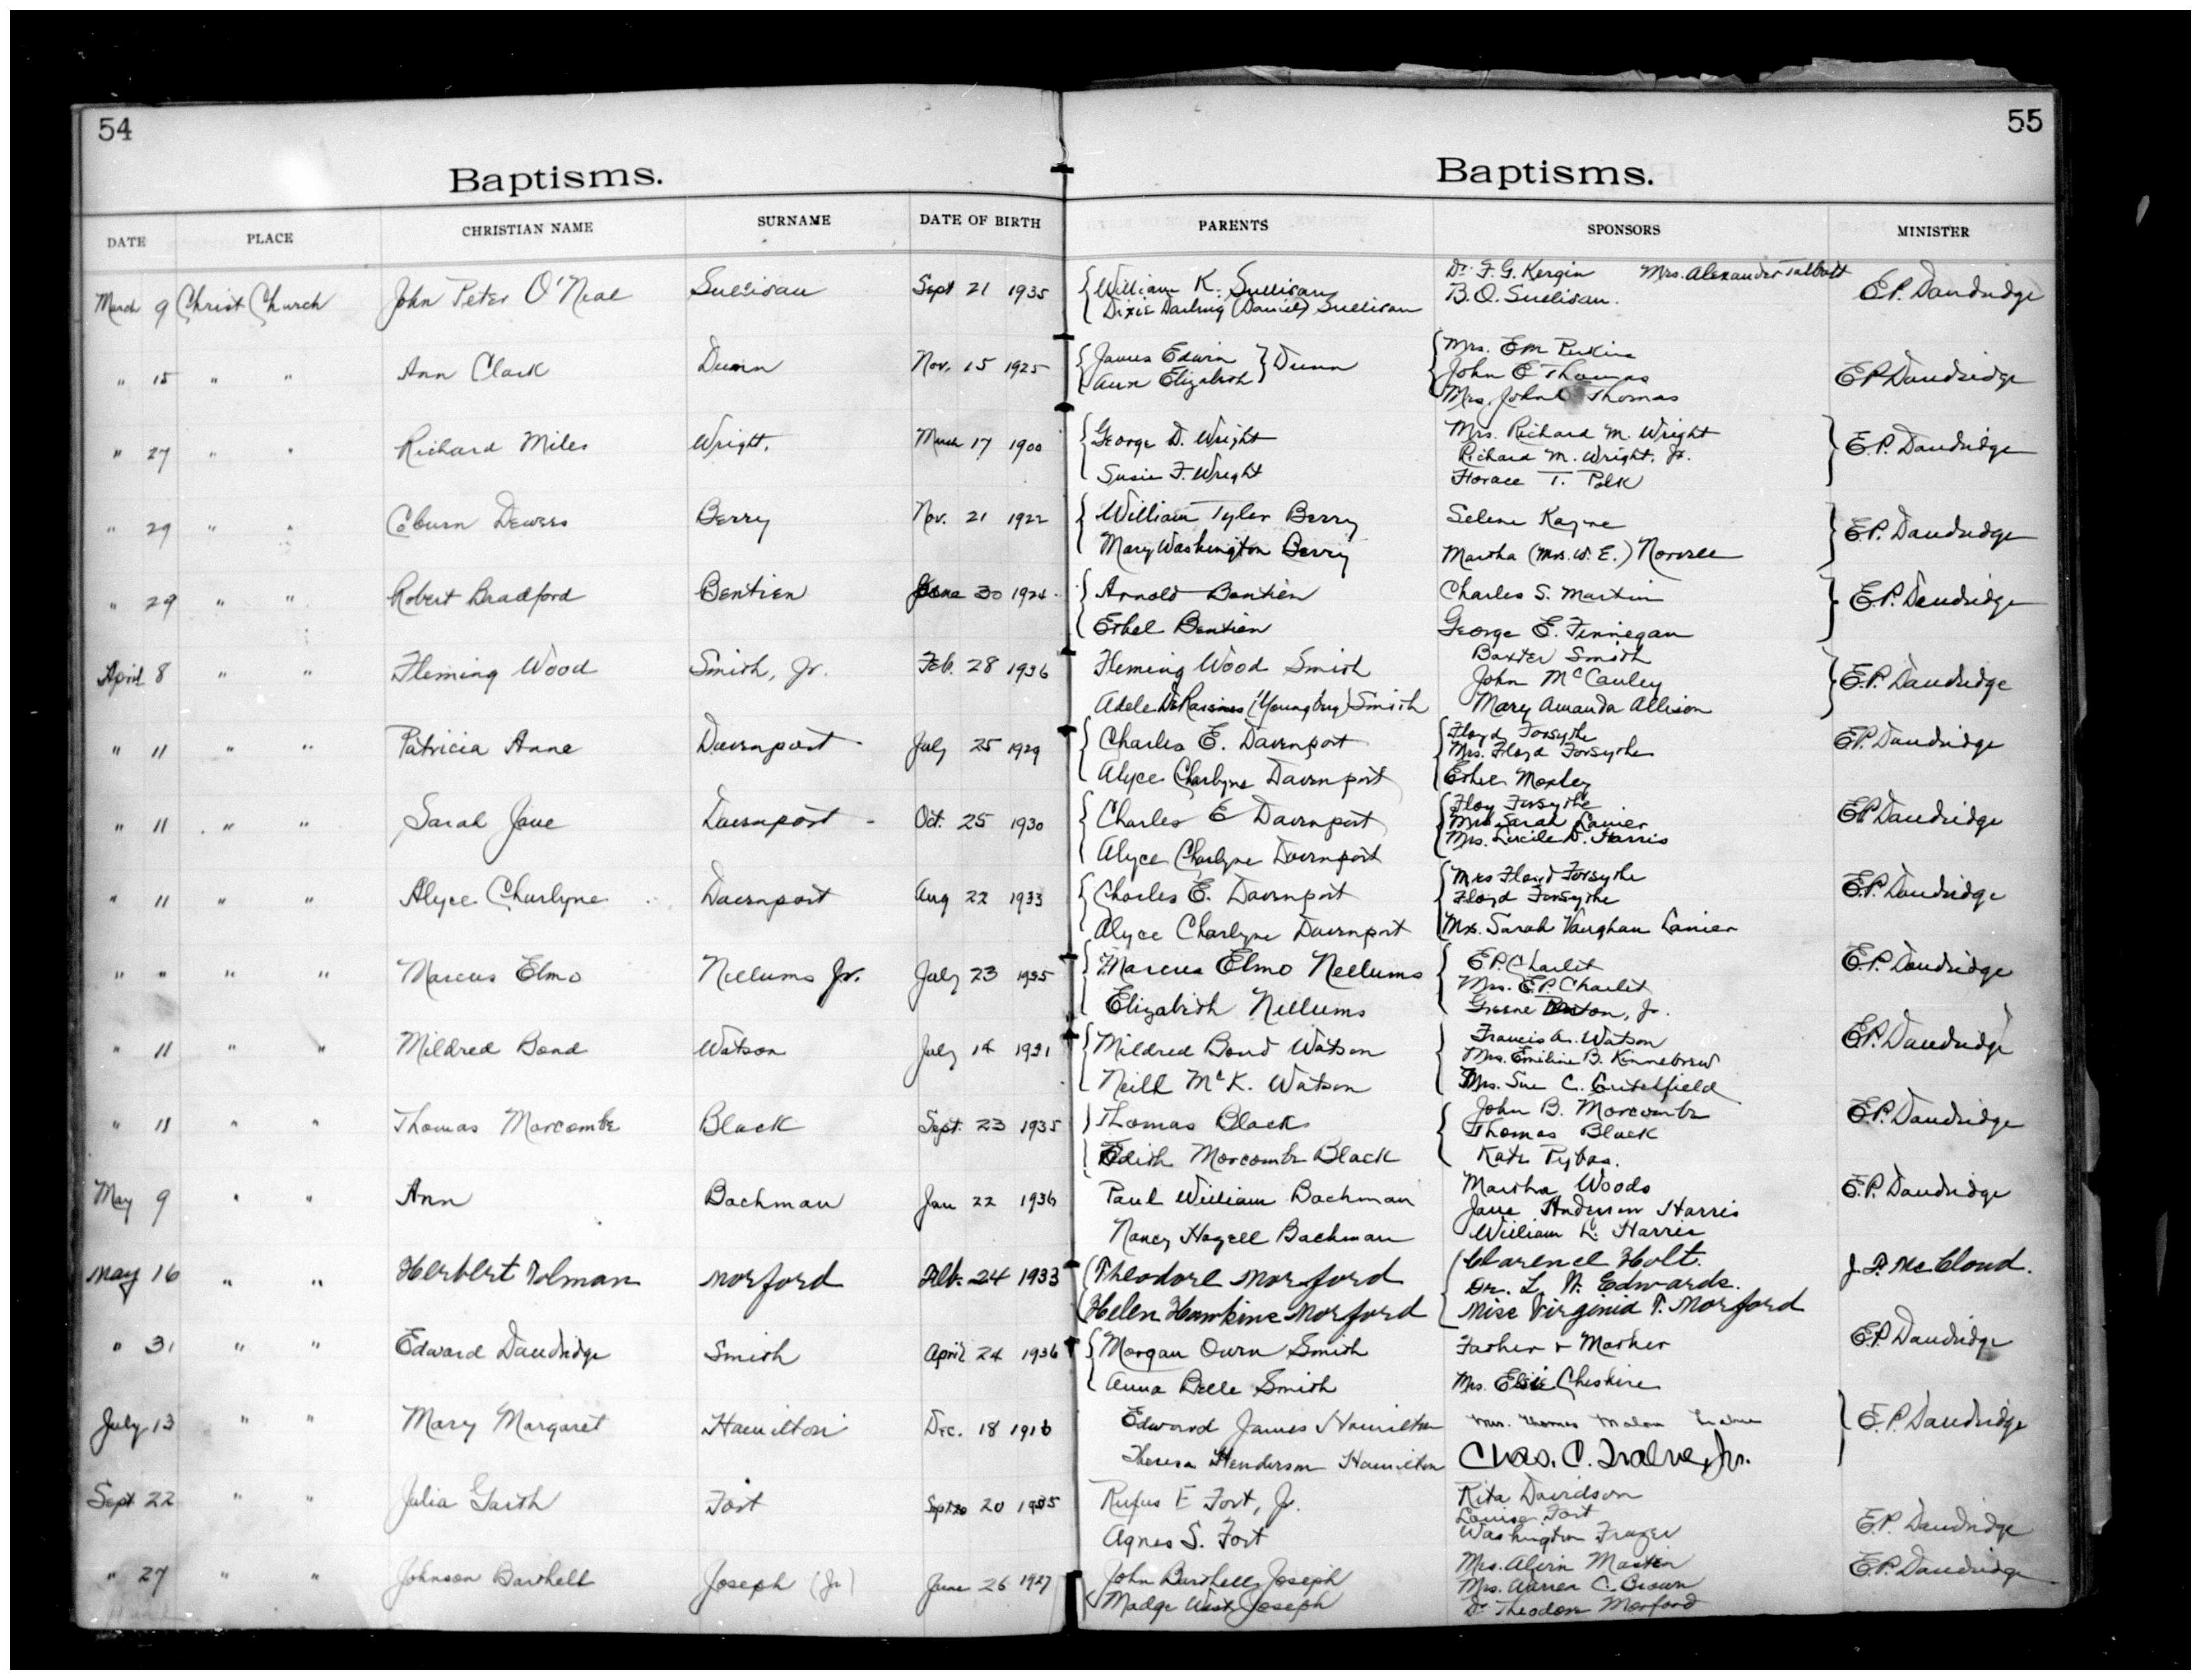 54
Baptisms.
DATE PLACE CHRISTIAN NAME SURNAME DATE OF BIRTH
March 9 Christ Church John Peter O'Neal Sullivan Sept 21 1935
" 15 " " Ann Clark Dunn Nov. 15 1925
" 27 " " Richard Miles Wright. March 17 1900
" 29 " " Coburn Dewees Berry Nov. 21 1922
" 29 " " Robert Bradford Bentien 30 1924
April 8 " " Fleming Wood Smith, Jr. Feb. 28 1936
" 11 " " Patricia Anne Davenport July 25 1929
" 11 " " Sarah Jane Davenport Oct. 25 1930
" 11 " " Alyce Charlyne Davenport Aug 22 1933
" " " " Marcus Elmo Nellums Jr. July 23 1935
" 11 " " Mildred Bond Watson July 14 1931
" 11 " " Thomas Morcombe Black Sept. 23 1935
May 9 " " Ann Bachman Jan 22 1936
May 16 " " Herbert Tolman Morford Feb. 24 1933
" 31 " " Edward Dandridge Smith April 24 1936
July 13 " " Mary Margaret Hamilton Dec. 18 1916
Sept 22 " " Julia Garth Fort 20 1935
" 27 " " Johnson Barthell Joseph (Jr) June 26 1927
55
Baptisms.
PARENTS SPONSORS MINISTER
William K. Sullivan Dr. F. G. Kergin Mrs. Alexander Talbott E.P. Dandridge
Dixie Darling (Daniel) Sullivan B.O. Sullivan.
James Edwin } Dunn Mrs. E M Perkins
Ann Elizabeth John E Thomas E P Dandridge
Mrs. John E Thomas
George D. Wright Mrs. Richard M. Wright E.P. Dandridge
Richard M. Wright, Jr.
Susie F. Wright Horace T. Polk
William Tyler Berry Selene Kayne E.P. Dandridge
Mary Washington Berry Martha (Mrs. W. E.) Norvell
Arnold Bentien Charles S. Martin E.P. Dandridge
Ethel Bentien George E. Finnegan
Baxter Smith
Fleming Wood Smith John McCauley E.P. Dandridge
Adele Smith Mary Amanda Allison
Floyd Forsythe
Charles E. Davenport Mrs. Floyd Forsythe E.P. Dandridge
Alyce Charlyne Davenport Ethel Moxley
Floy Forsythe
Charles E Davenport Mrs Sarah Lanier E.P. Dandridge
Mrs. Lucile D. Harris
Alyce Charlyne Davenport
Mrs Floyd Forsythe
Charles E. Davenport Floyd Forsythe E.P. Dandridge
Alyce Charlyne Davenport Mrs. Sarah Vaughan Lanier
Marcus Elmo Nellums E.P. Charlet E.P. Dandridge
Mrs. E.P. Charlet
Elizabeth Nellums Greene Jr.
Mildred Bond Watson Francis A. Watson E.P. Dandridge
Mrs. Emiline B. Kinnebrew
Neill McK. Watson Mrs. Sue C. Critchfield
Thomas Black John B. Morcombe E.P. Dandridge
Thomas Black
Edith Morcombe Black Kate Tybas.
Paul William Bachman Martha Woods E.P. Dandridge
Jane Anderson Harris
Nancy Hazell Bachman William L. Harris
Theodore Morford Clarence Holt. J. F. McCloud.
Dr. L. N. Edwards.
Helen Hawkins Morford Miss Virginia T. Morford
Morgan Owen Smith Father & Mother E.P. Dandridge
Anna Belle Smith Mrs. Elsie Cheshire
Edward James Hamilton Mrs. Thomas Malon E.P. Dandridge
Theresa Henderson Hamilton Chas. C. Trabue, Jr.
Rufus E Fort, Jr. Rita Davidson
Louise Fort
Agnes S. Fort Washington Frazer E.P. Dandridge
John Barthell Joseph Mrs. Alvin Mastin E.P. Dandridge
Mrs. Warner C. Brown
Madge West Joseph Dr. Theodore Morford